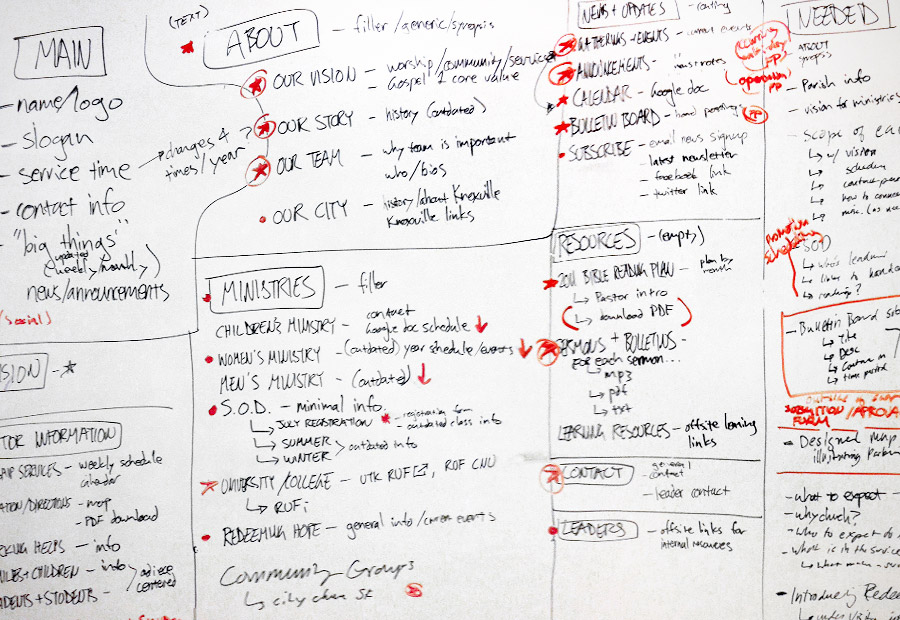 MAIN
- name/logo
- slogan
- service time → changes 4 ?
times/year
- contact info
- "big things"
updated
(weekly/monthly)
news/announcements
/social)
SION
TOR INFORMATION
SHIP SERVICES - weekly schedule
calendar
ATION/DIRECTIONS - map
- PDF download
RKING HELPS - info
ILIES + CHILDREN - info
DENTS + STUDENTS -
centered
(TEXT)
ABOUT - filler/generic/synopsis
OUR VISION - worship/community/service
Gospel 1 core value
OUR STORY - history (outdated)
OUR TEAM - why team is important
who/bios
OUR CITY - history/about Knoxville
Knoxville links
MINISTRIES - filler
CHILDREN'S MINISTRY - contact
Google doc schedule
WOMEN'S MINISTRY - (outdated) year schedule/events
MEN'S MINISTRY - (outdated)
S.O.D. - minimal info
JULY REGISTRATION - registration form
- outdated class info
SUMMER
WINTER > outdated info
UNIVERSITY/COLLEGE - UTK RUF, RUF CNU
RUFi
REDEEMING HOPE - general info/current events
Community Groups
NEWS + UPDATES
GATHERINGS + EVENTS - current events
ANNOUNCEMENTS -
CALENDAR - Google doc
BULLETIN BOARD -
SUBSCRIBE - email news signup
- latest newsletter
- facebook link
- twitter link
RESOURCES - (empty)
2011 BIBLE READING PLAN - plan by
month
Pastor intro
(download PDF)
SERMONS + BULLETINS
for each sermon...
mp3
pdf
txt
LEARNING RESOURCES - offsite learning
links
CONTACT - general
contact
- leader contact
LEADERS - offsite links for
internal resources
NEEDED
ABOUT
synopsis
- Parish info
- vision for ministries
- Scope of ea
w/ vision
how to connec
SOD
who's leading
readings?
- Bulletin Board sub
Title
Desc
Contact in
time period
FORM
- Designed map
illustrating Parkin
- what to expect
- why church?
- who to expect
- what is in the service
- Introducing Redee